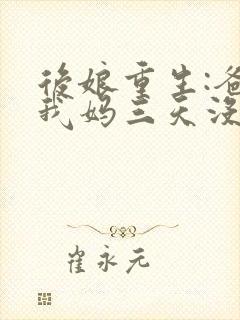 後娘重生:爸
我妈三天没
崔永元